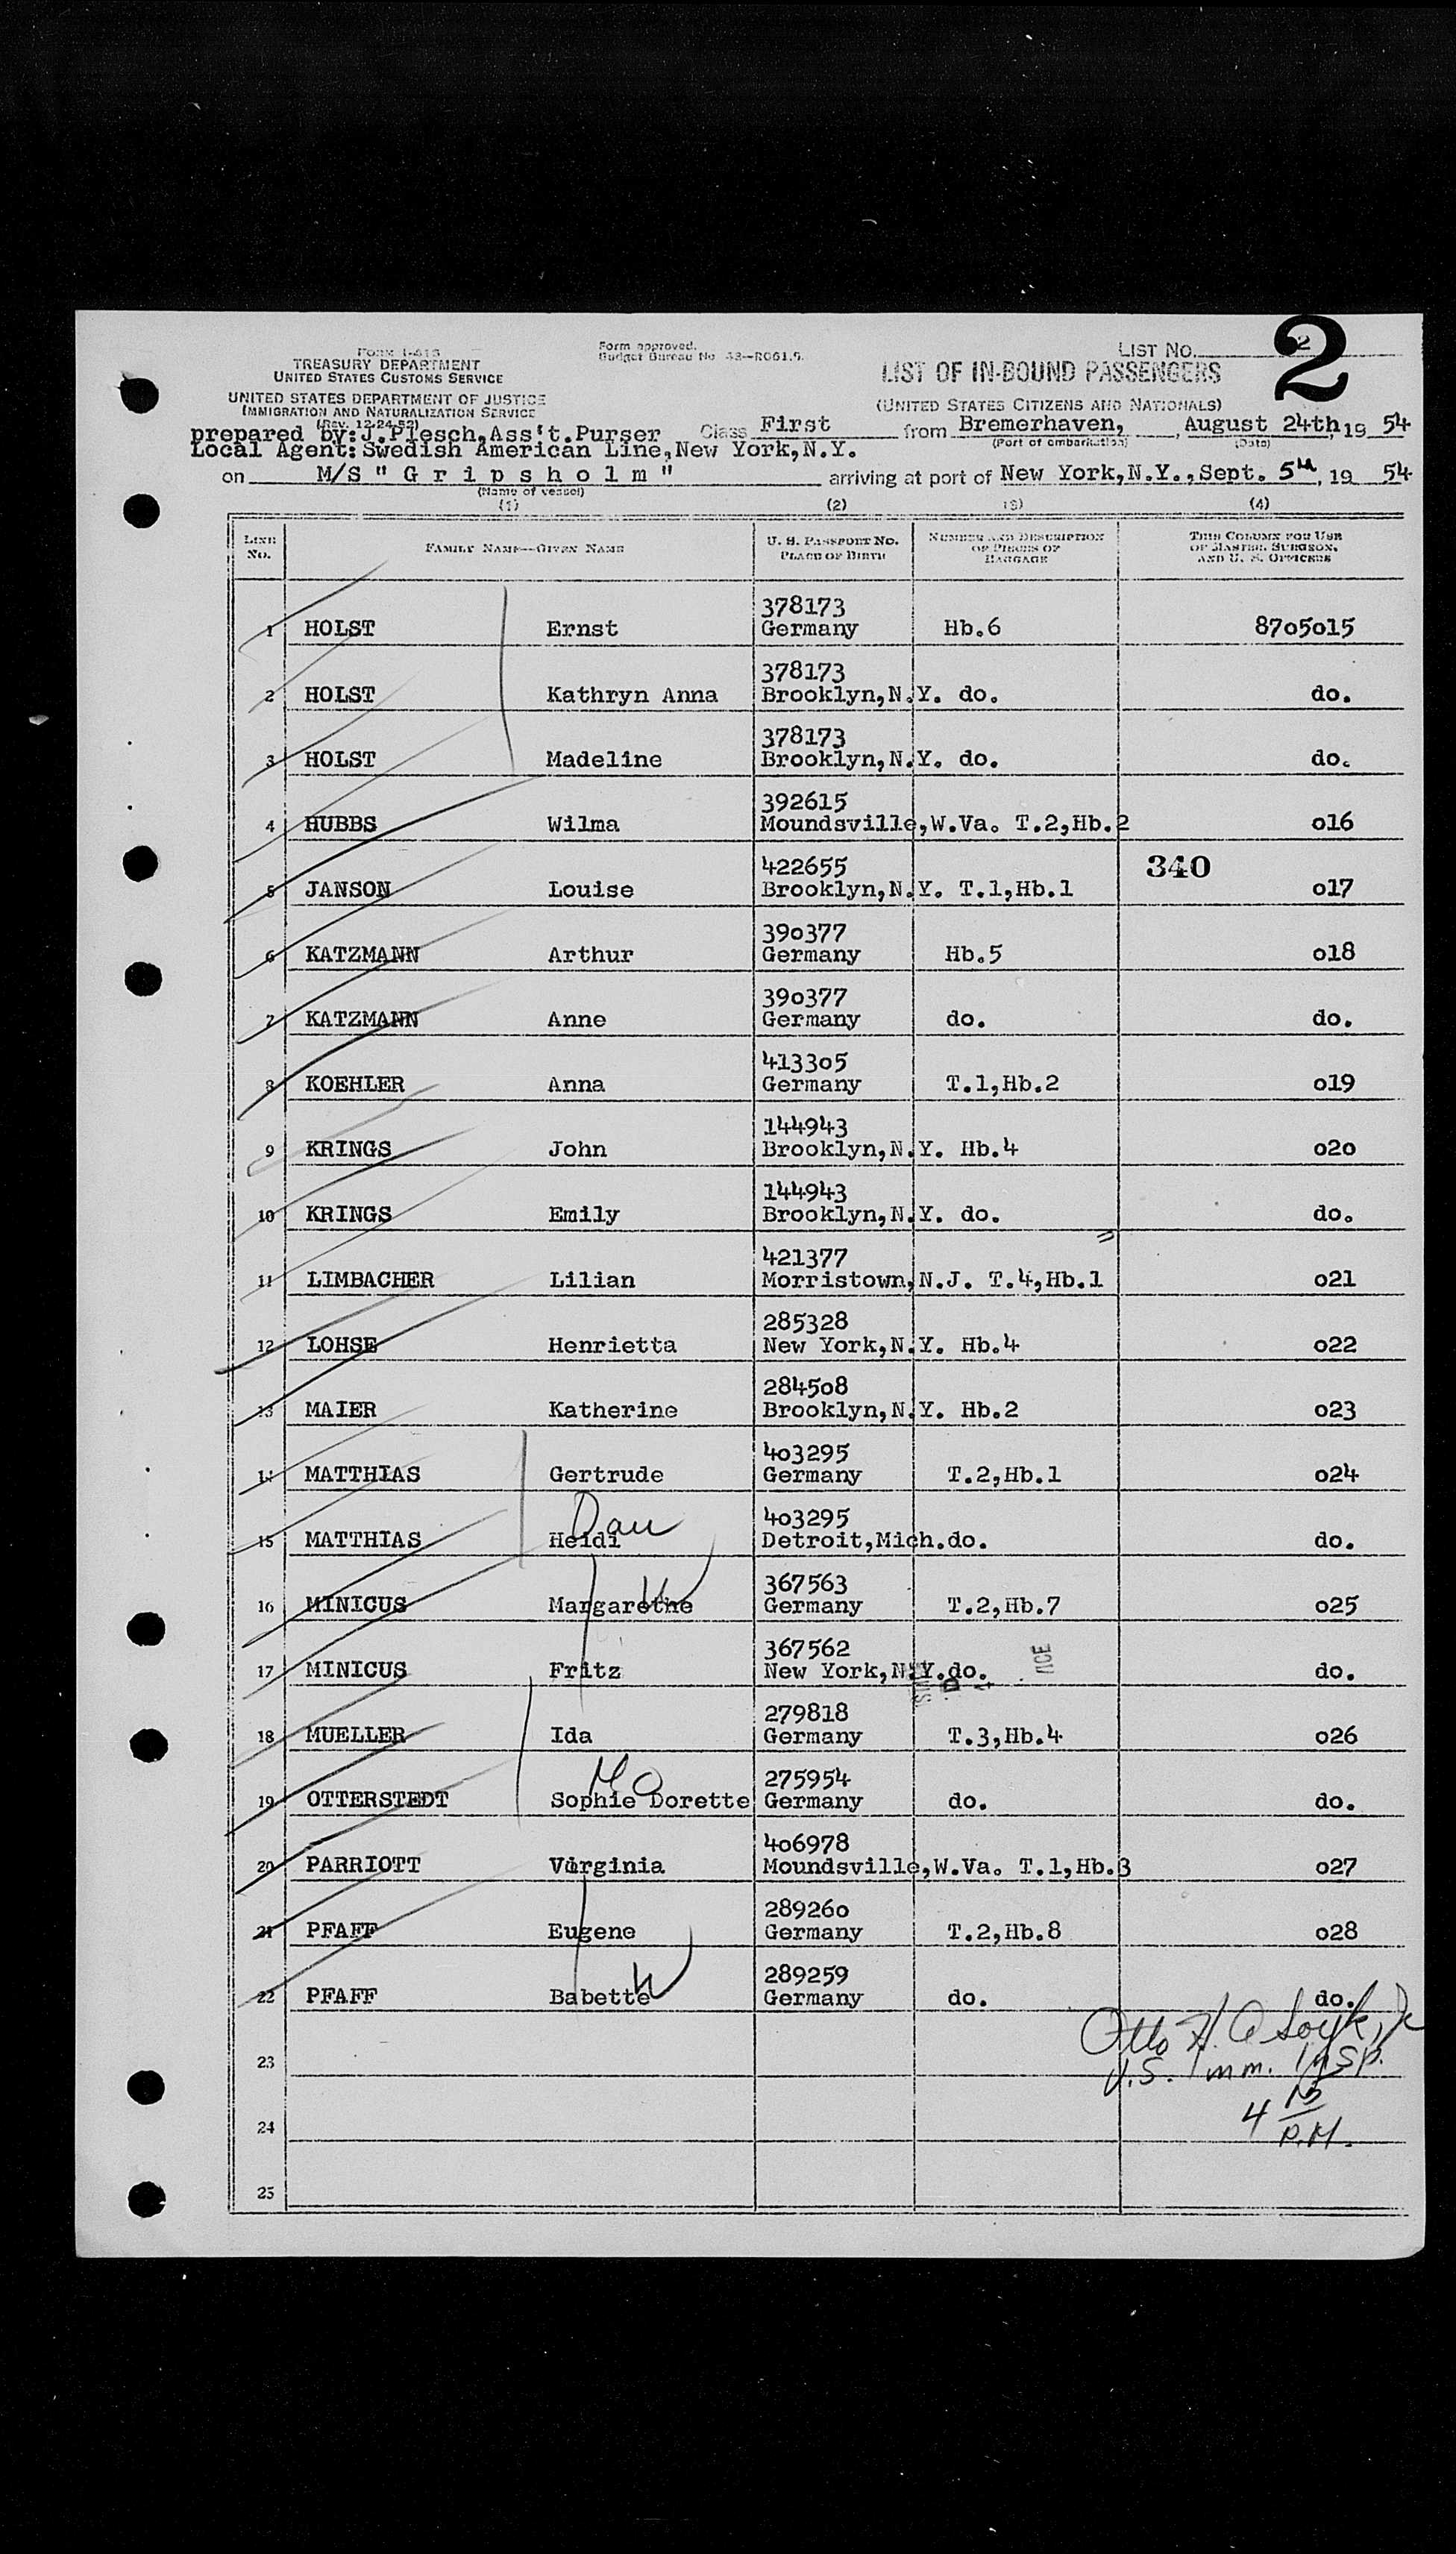 Form I-415
TREASURY DEPARTMENT
UNITED STATES CUSTOMS SERVICE
UNITED STATES DEPARTMENT OF JUSTICE
IMMIGRATION AND NATURALIZATION SERVICE
(Rev. 12-24-52)
Form approved.
Budget Bureau No. 43-R061.5.
LIST No. 2
2
LIST OF IN-BOUND PASSENGERS
(UNITED STATES CITIZENS AND NATIONALS)
prepared by:J.Plesch,Ass't.Purser Class First from Bremerhaven, , August 24th, 19 54
(Port of embarkation) (Date)
Local Agent:Swedish American Line,New York,N.Y.
on M/S " G r i p s h o l m " arriving at port of New York,N.Y.,Sept. 5th, 19 54
(Name of vessel)
(1) (2) (3) (4)
LINE No. FAMILY NAME—GIVEN NAME U. S. PASSPORT NO. PLACE OF BIRTH NUMBER AND DESCRIPTION OF PIECES OF BAGGAGE THIS COLUMN FOR USE OF MASTER, SURGEON, AND U. S. OFFICERS
378173
1 HOLST Ernst Germany Hb.6 8705015
378173
2 HOLST Kathryn Anna Brooklyn,N.Y. do. do.
378173
3 HOLST Madeline Brooklyn,N.Y. do. do.
392615
4 HUBBS Wilma Moundsville,W.Va. T.2,Hb.2 016
422655 340
5 JANSON Louise Brooklyn,N.Y. T.1,Hb.1 017
390377
6 KATZMANN Arthur Germany Hb.5 018
390377
7 KATZMANN Anne Germany do. do.
413305
8 KOEHLER Anna Germany T.1,Hb.2 019
144943
9 KRINGS John Brooklyn,N.Y. Hb.4 020
144943
10 KRINGS Emily Brooklyn,N.Y. do. do.
421377
11 LIMBACHER Lilian Morristown,N.J. T.4,Hb.1 021
285328
12 LOHSE Henrietta New York,N.Y. Hb.4 022
284508
13 MAIER Katherine Brooklyn,N.Y. Hb.2 023
403295
14 MATTHIAS Gertrude Germany T.2,Hb.1 024
Dau 403295
15 MATTHIAS Heidi Detroit,Mich.do. do.
367563
16 MINICUS Margarethe W Germany T.2,Hb.7 025
367562
17 MINICUS Fritz New York,N.Y.do. do.
279818
18 MUELLER Ida Germany T.3,Hb.4 026
Mo 275954
19 OTTERSTEDT Sophie Dorette Germany do. do.
406978
20 PARRIOTT Virginia Moundsville,W.Va. T.1,Hb.3 027
289260
21 PFAFF Eugene Germany T.2,Hb.8 028
289259
22 PFAFF Babette W Germany do. do.
23
U.S. Imm. Insp.
24
4 15
P.M.
25